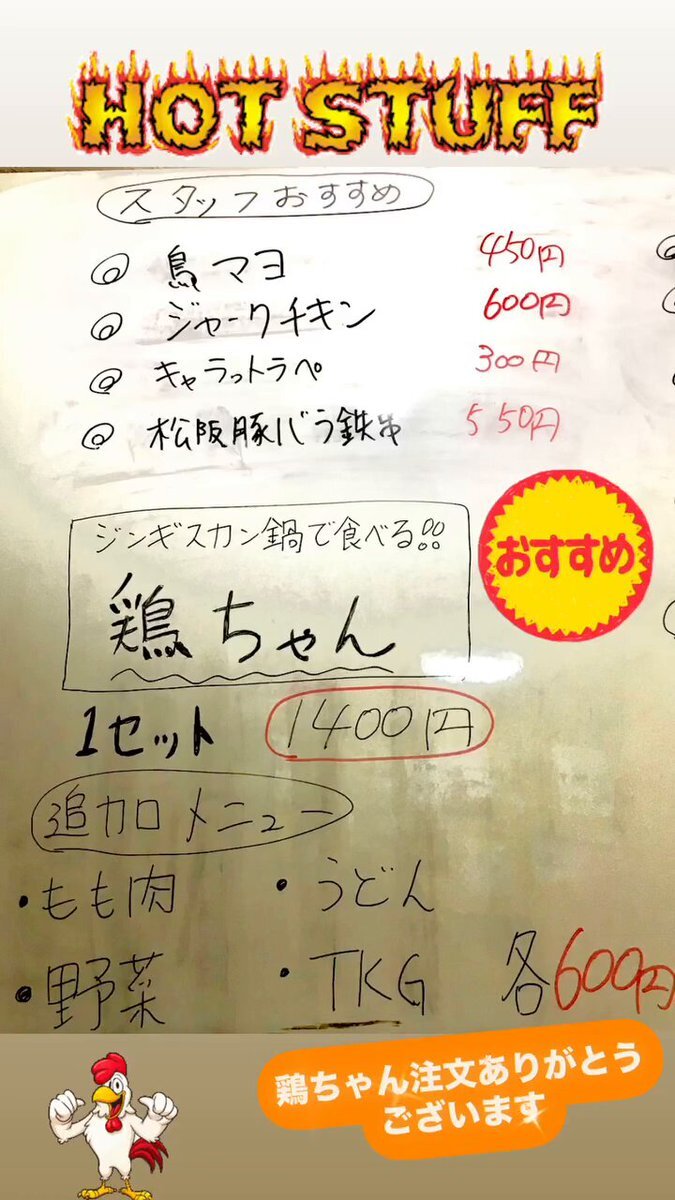 HOT STUFF
スタッフおすすめ
◎ 鳥マヨ 450円
◎ ジャークチキン 600円
◎ キャラットラペ 300円
◎ 松阪豚バラ鉄串 550円
ジンギスカン鍋で食べる!!
おすすめ
鶏ちゃん
1セット 1400円
追加メニュー
・もも肉 ・うどん
・野菜 ・TKG 各600円
鶏ちゃん注文ありがとう
ございます